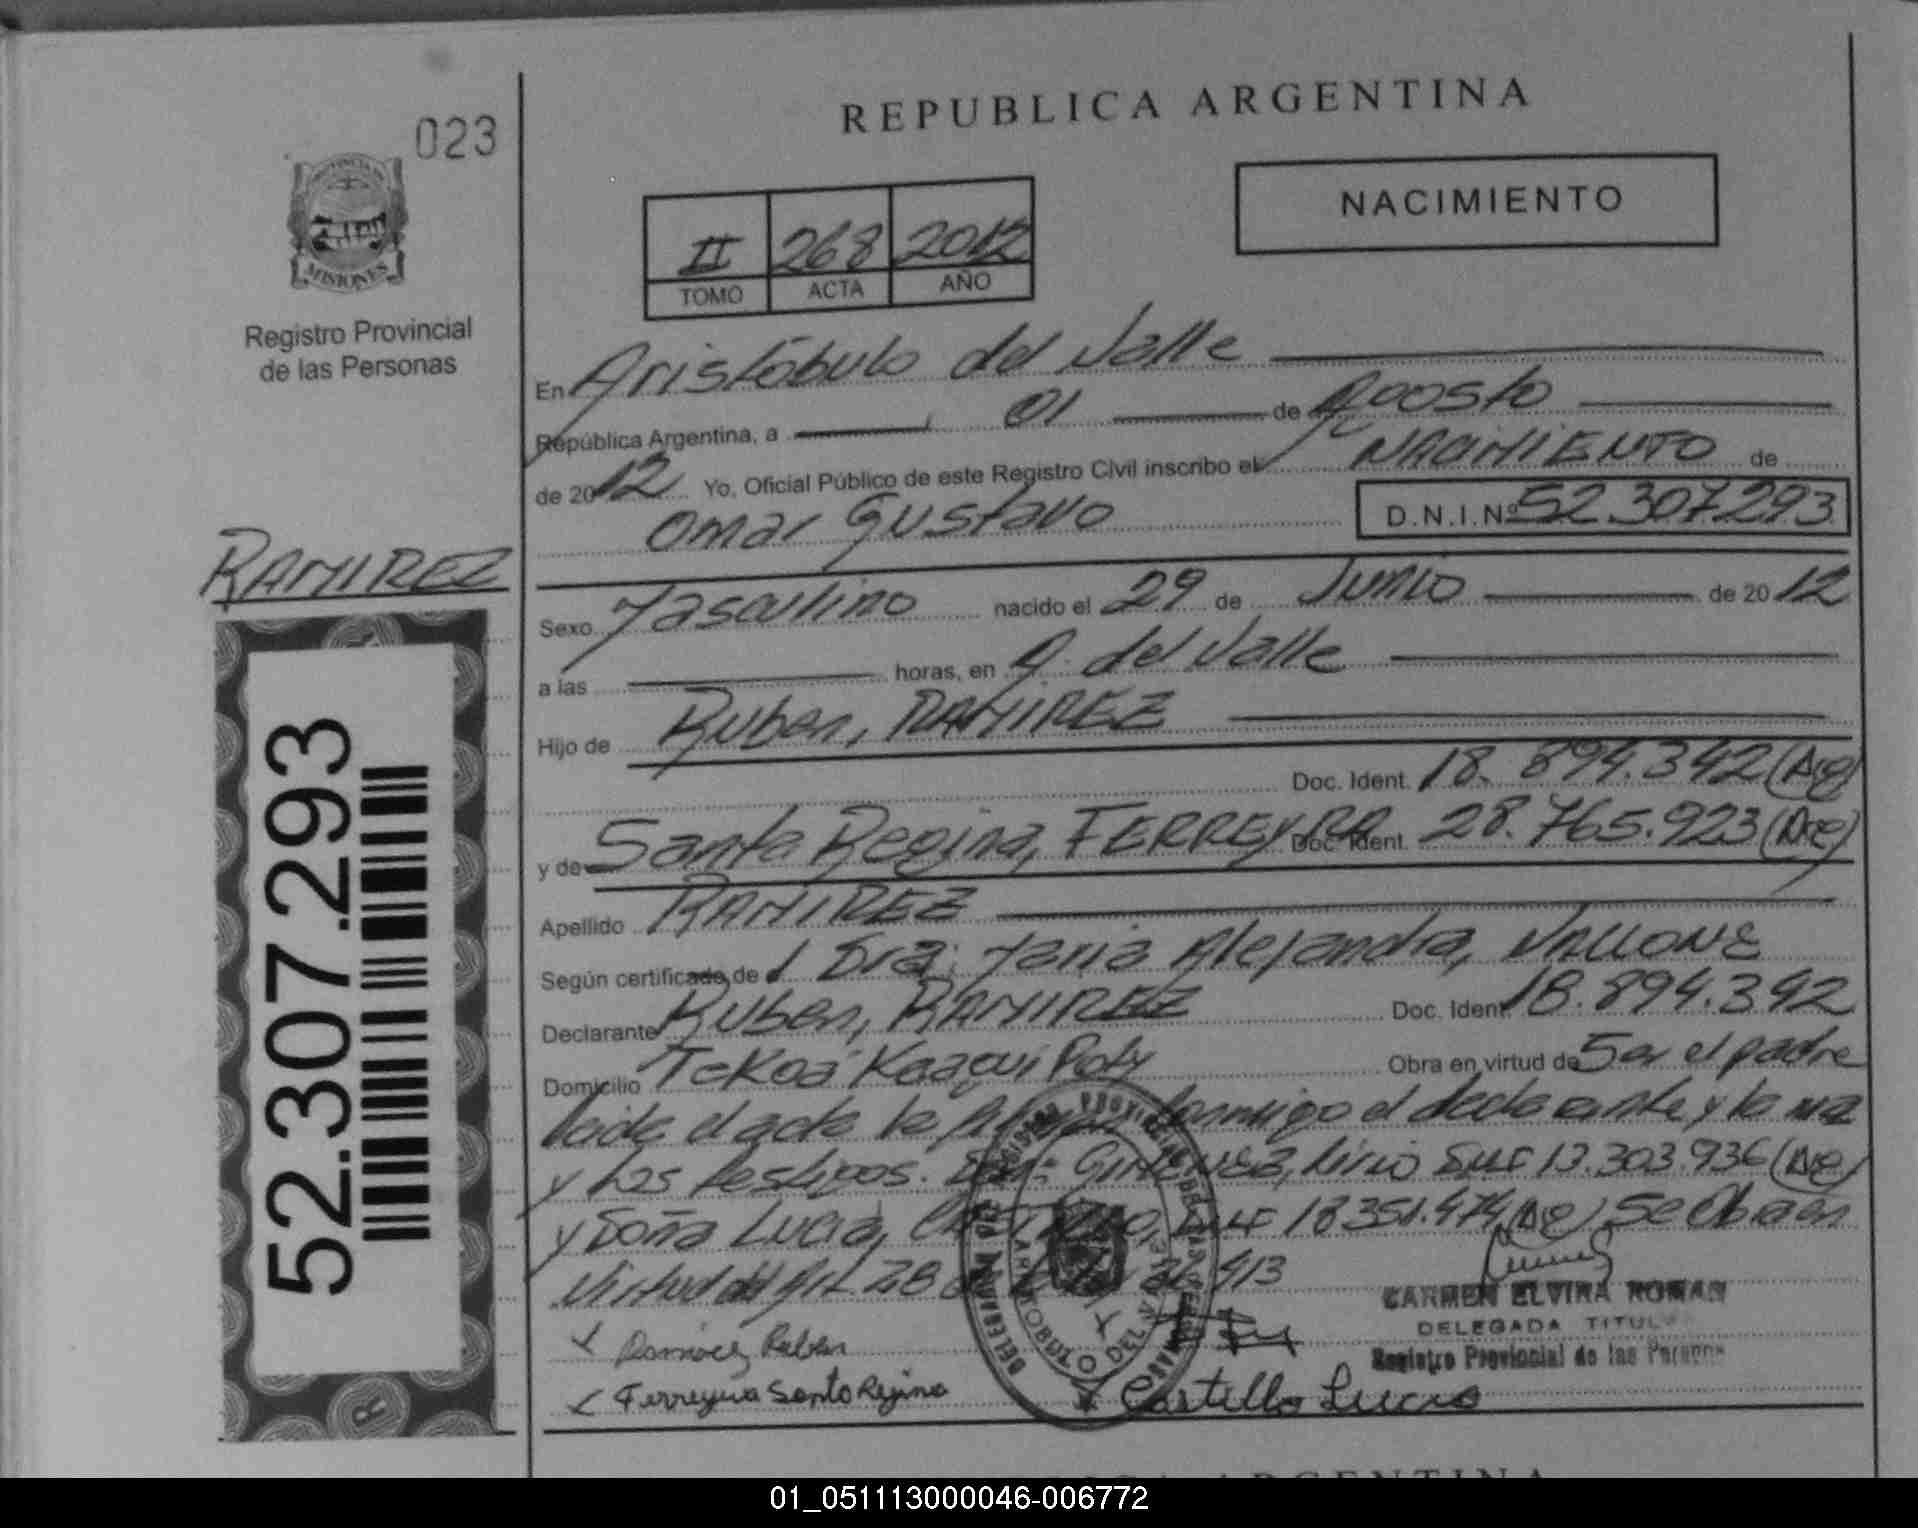 023
REPUBLICA ARGENTINA
NACIMIENTO
II 268 2012
TOMO ACTA AÑO
PROVINCIA DE
MISIONES
Registro Provincial
de las Personas
En Aristóbulo del Valle
República Argentina, a 01 de Agosto
de 2012 Yo, Oficial Público de este Registro Civil inscribo el NACIMIENTO de
Omar Gustavo D.N.I.Nº 52.307.293
RAMIREZ
Sexo Masculino nacido el 29 de Junio de 2012
a las horas, en A. del Valle
Hijo de Ruben, RAMIREZ
Doc. Ident. 18.894.342 (Arg)
y de Santa Regina, FERREYRA Doc. Ident. 28.765.923 (Arg)
Apellido RAMIREZ
Según certificado de Dra. Maria Alejandra, VALLONE
Declarante Ruben, RAMIREZ Doc. Ident 18.894.342
Domicilio Tekoá Kaagui Poty Obra en virtud de Ser el padre
leida el acta la conmigo el declarante y la
y los testigos. Don: GIMENEZ, Lirio DNI 13.303.936 (Arg)
y Doña Lucia, DNI 18351.474 (Arg) Se Obra en
Virtud del Art. 28 413
CARMEN ELVIRA ROMAN
DELEGADA TITUL
Registro Provincial de las Personas
Ramirez Ruben
Ferreyra Santa Regina
Castillo Lucia
52.307.293
ARGENTINA
01_051113000046-006772